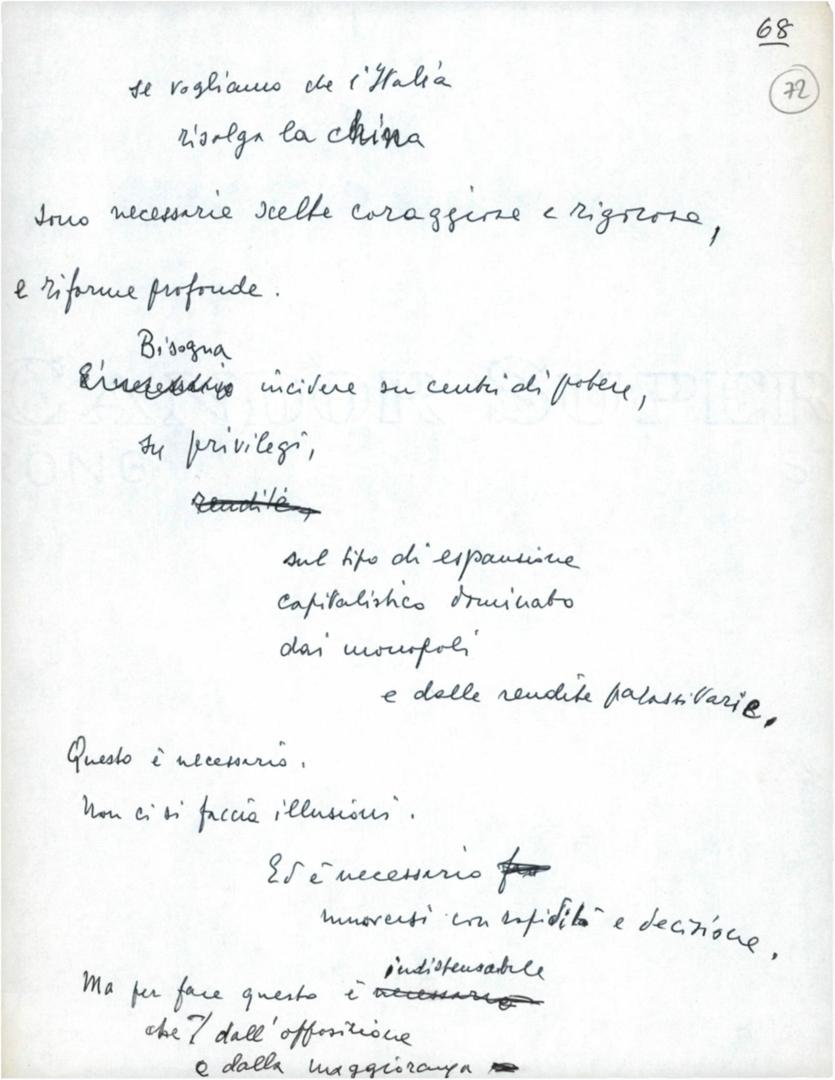 68
72
se vogliamo che l'Italia
risalga la china
sono necessarie scelte coraggiose e rigorose,
e riforme profonde.
Bisogna
E' necessario incidere su centri di potere,
su privilegi,
rendite,
sul tipo di espansione
capitalistico dominato
dai monopoli
e dalle rendite parassitarie.
Questo è necessario.
Non ci si faccia illusioni.
Ed è necessario
muoversi con rapidità e decisione.
indispensabile
Ma per fare questo è necessario
che dall'opposizione
e dalla maggioranza